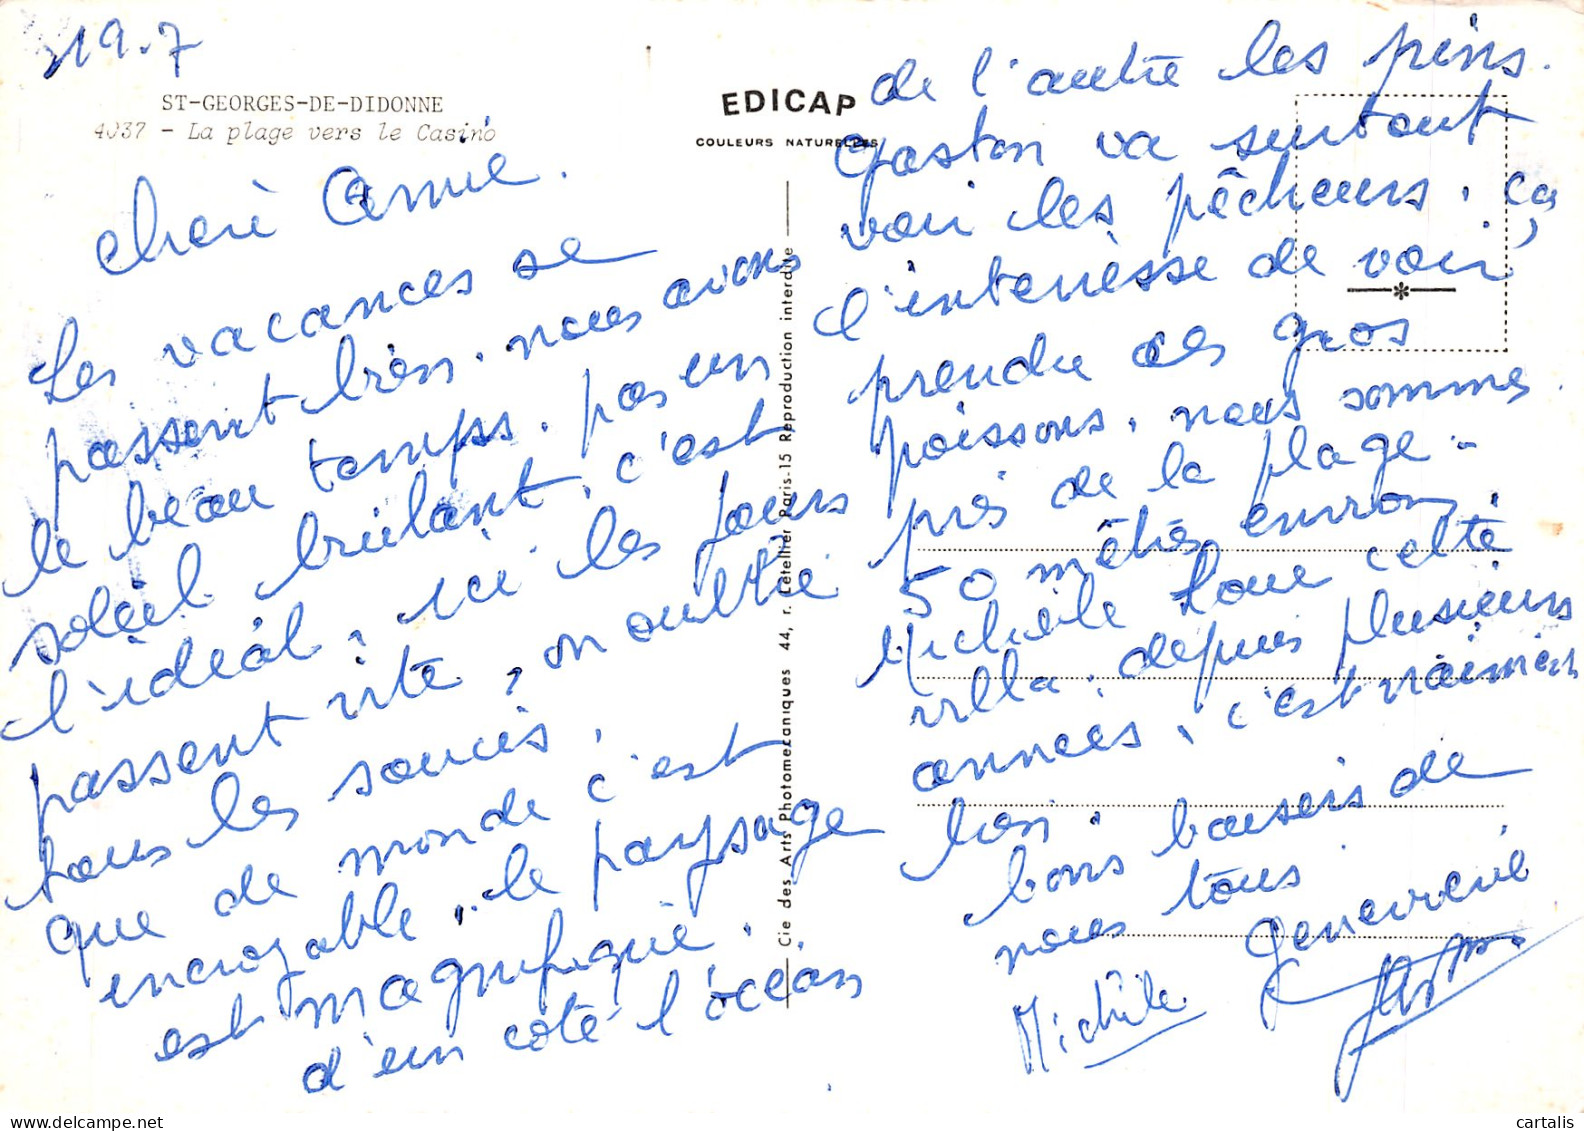 19.7
ST-GEORGES-DE-DIDONNE
4037 - La plage vers le Casino
EDICAP
COULEURS NATURELLES
Cie des Arts Photomécaniques 44, r. Letellier Paris-15 Reproduction interdite
Cherè Annie.
Les vacances se
passent bien. nous avons
le beau temps. pas un
soleil brûlant. c'est
l'idéal, ici les jours
passent vite, on oublie
tous les soucis.
que de monde c'est
incroyable. le paysage
est magnifique.
d'un côté l'océan
de l'autre les pins.
Gaston va surtout
voir les pêcheurs. ça
l'interèsse de voir
prendre ces gros
poissons. nous sommes
près de la plage -
50 mètres environ.
Michèle loue cette
villa. depuis plusieurs
années. c'est vraiment
bon.
bons baisers de
nous tous
Geneviève
Michèle
cartalis